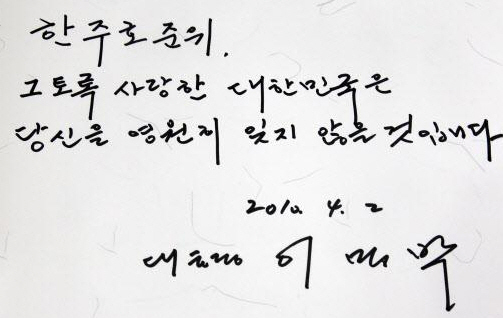 한 주호 준위.
그토록 사랑한 대한민국은
당신을 영원히 잊지 않을것입니다
2010. 4. 2
대통령 이 명 박